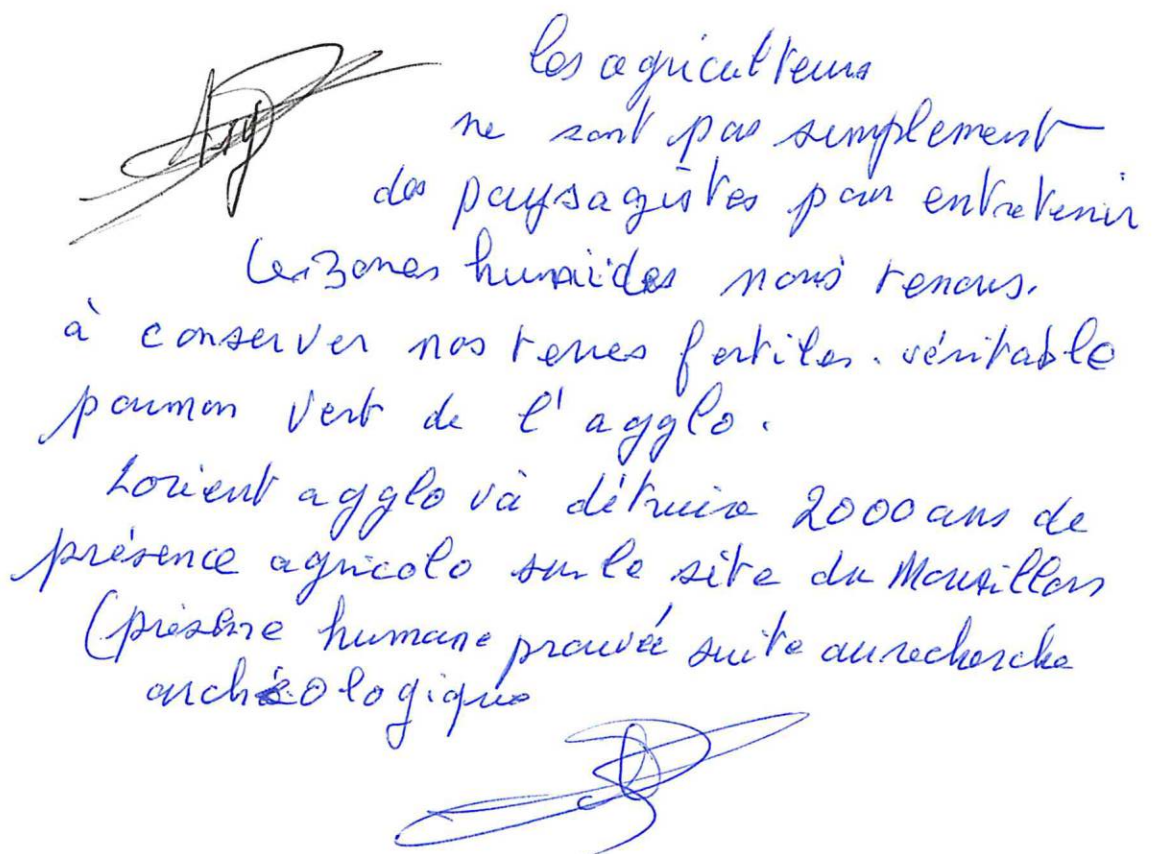 les agriculteurs
ne sont pas simplement
des paysagistes pour entretenir
les zones humides nous tenons.
à conserver nos terres fertiles. véritable
poumon vert de l'agglo.
Lorient agglo và détruire 2000 ans de
présence agricole sur le site du Mourillon
(présence humaine prouvée suite au recherche
archéologique